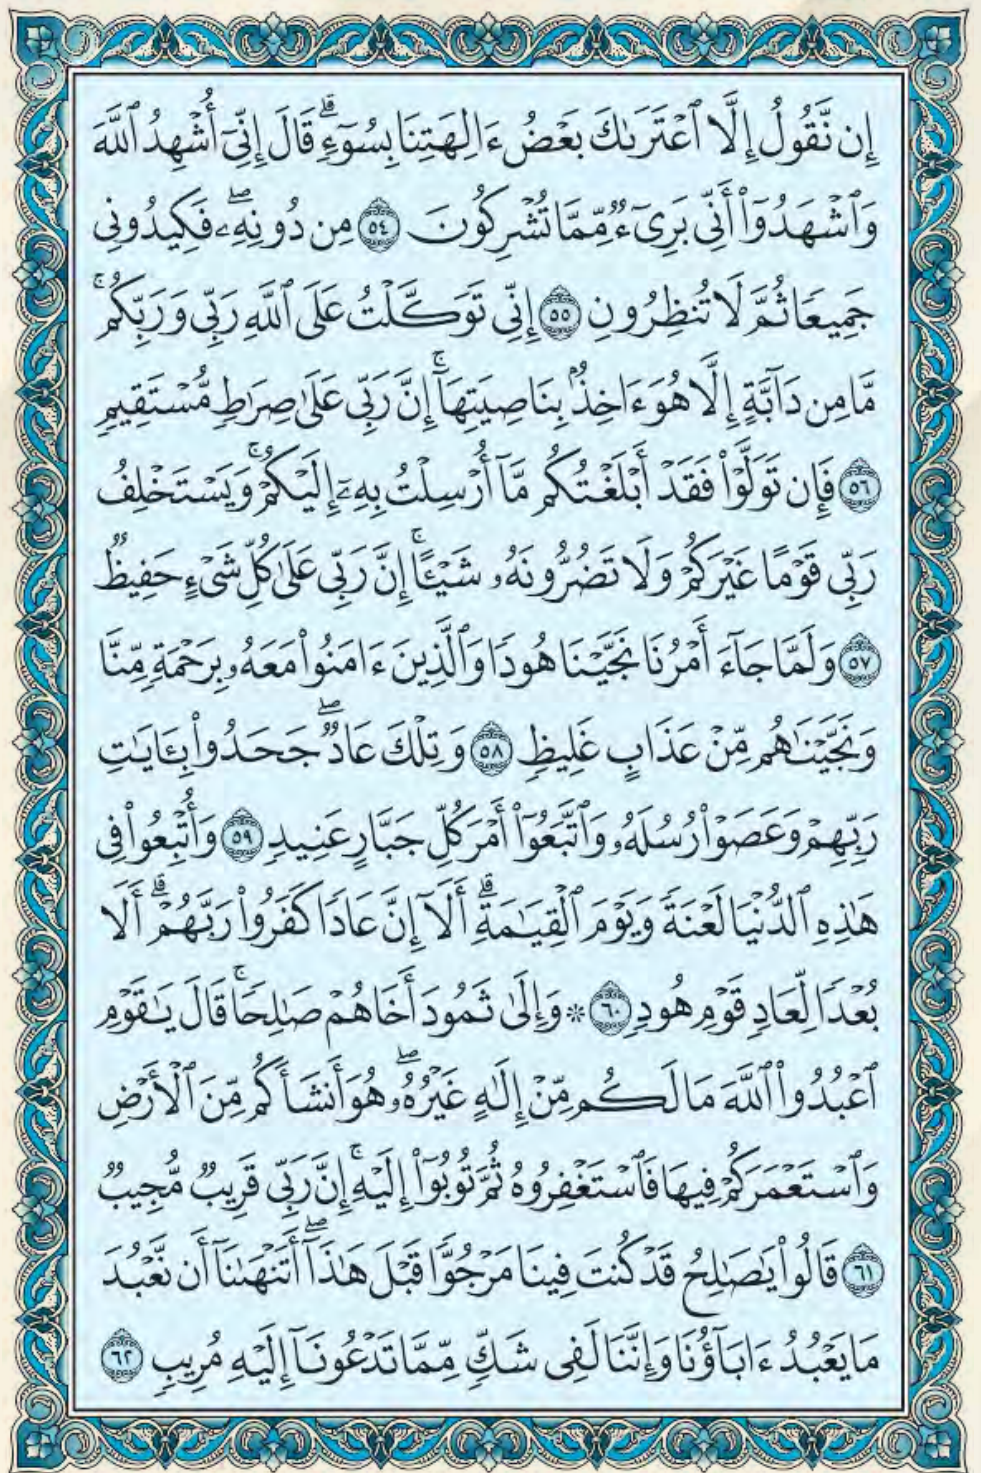 إِن نَّقُولُ إِلَّا ٱعْتَرَىٰكَ بَعْضُ ءَالِهَتِنَا بِسُوٓءٍۗ قَالَ إِنِّىٓ أُشْهِدُ ٱللَّهَ
وَٱشْهَدُوٓاْ أَنِّى بَرِىٓءٌ مِّمَّا تُشْرِكُونَ ٥٤ مِن دُونِهِۦۖ فَكِيدُونِى
جَمِيعًا ثُمَّ لَا تُنظِرُونِ ٥٥ إِنِّى تَوَكَّلْتُ عَلَى ٱللَّهِ رَبِّى وَرَبِّكُمۚ
مَّا مِن دَآبَّةٍ إِلَّا هُوَ ءَاخِذٌۢ بِنَاصِيَتِهَآۚ إِنَّ رَبِّى عَلَىٰ صِرَٰطٍ مُّسْتَقِيمٍ
٥٦ فَإِن تَوَلَّوْاْ فَقَدْ أَبْلَغْتُكُم مَّآ أُرْسِلْتُ بِهِۦٓ إِلَيْكُمْۚ وَيَسْتَخْلِفُ
رَبِّى قَوْمًا غَيْرَكُمْ وَلَا تَضُرُّونَهُۥ شَيْـًٔاۚ إِنَّ رَبِّى عَلَىٰ كُلِّ شَىْءٍ حَفِيظٌ
٥٧ وَلَمَّا جَآءَ أَمْرُنَا نَجَّيْنَا هُودًا وَٱلَّذِينَ ءَامَنُواْ مَعَهُۥ بِرَحْمَةٍ مِّنَّا
وَنَجَّيْنَٰهُم مِّنْ عَذَابٍ غَلِيظٍ ٥٨ وَتِلْكَ عَادٌۖ جَحَدُواْ بِـَٔايَٰتِ
رَبِّهِمْ وَعَصَوْاْ رُسُلَهُۥ وَٱتَّبَعُوٓاْ أَمْرَ كُلِّ جَبَّارٍ عَنِيدٍ ٥٩ وَأُتْبِعُواْ فِى
هَٰذِهِ ٱلدُّنْيَا لَعْنَةً وَيَوْمَ ٱلْقِيَٰمَةِۗ أَلَآ إِنَّ عَادًا كَفَرُواْ رَبَّهُمْۗ أَلَا
بُعْدًا لِّعَادٍ قَوْمِ هُودٍ ٦٠ ۞ وَإِلَىٰ ثَمُودَ أَخَاهُمْ صَٰلِحًاۚ قَالَ يَٰقَوْمِ
ٱعْبُدُواْ ٱللَّهَ مَا لَكُم مِّنْ إِلَٰهٍ غَيْرُهُۥۖ هُوَ أَنشَأَكُم مِّنَ ٱلْأَرْضِ
وَٱسْتَعْمَرَكُمْ فِيهَا فَٱسْتَغْفِرُوهُ ثُمَّ تُوبُوٓاْ إِلَيْهِۚ إِنَّ رَبِّى قَرِيبٌ مُّجِيبٌ
٦١ قَالُواْ يَٰصَٰلِحُ قَدْ كُنتَ فِينَا مَرْجُوًّا قَبْلَ هَٰذَآۖ أَتَنْهَىٰنَآ أَن نَّعْبُدَ
مَا يَعْبُدُ ءَابَآؤُنَا وَإِنَّنَا لَفِى شَكٍّ مِّمَّا تَدْعُونَآ إِلَيْهِ مُرِيبٍ ٦٢